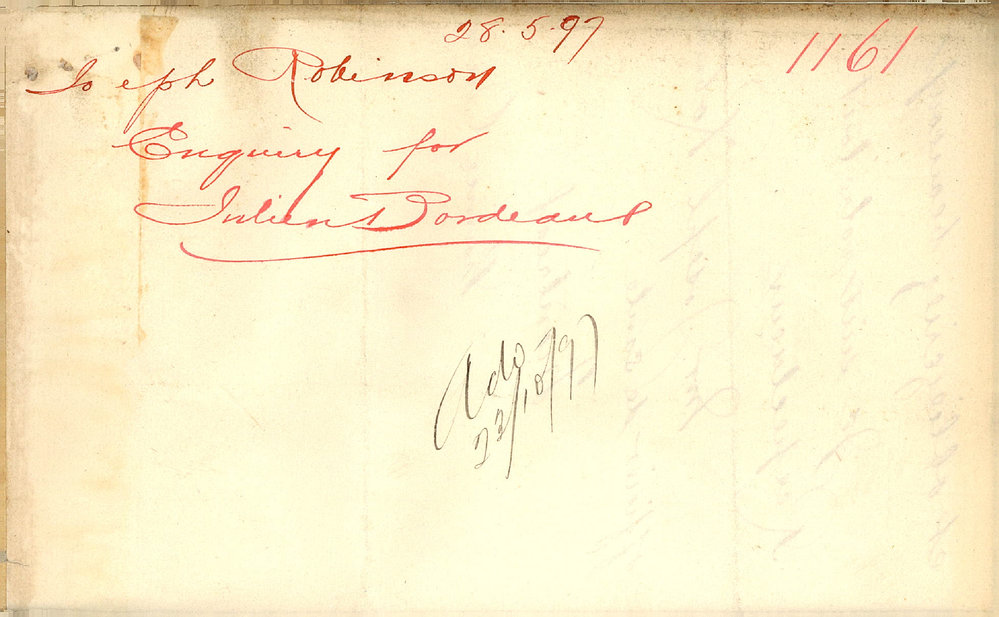 28.5.97
1161
Joseph Robinson
Enquiry for
Julien Bordeaux
Ado
22/10/97